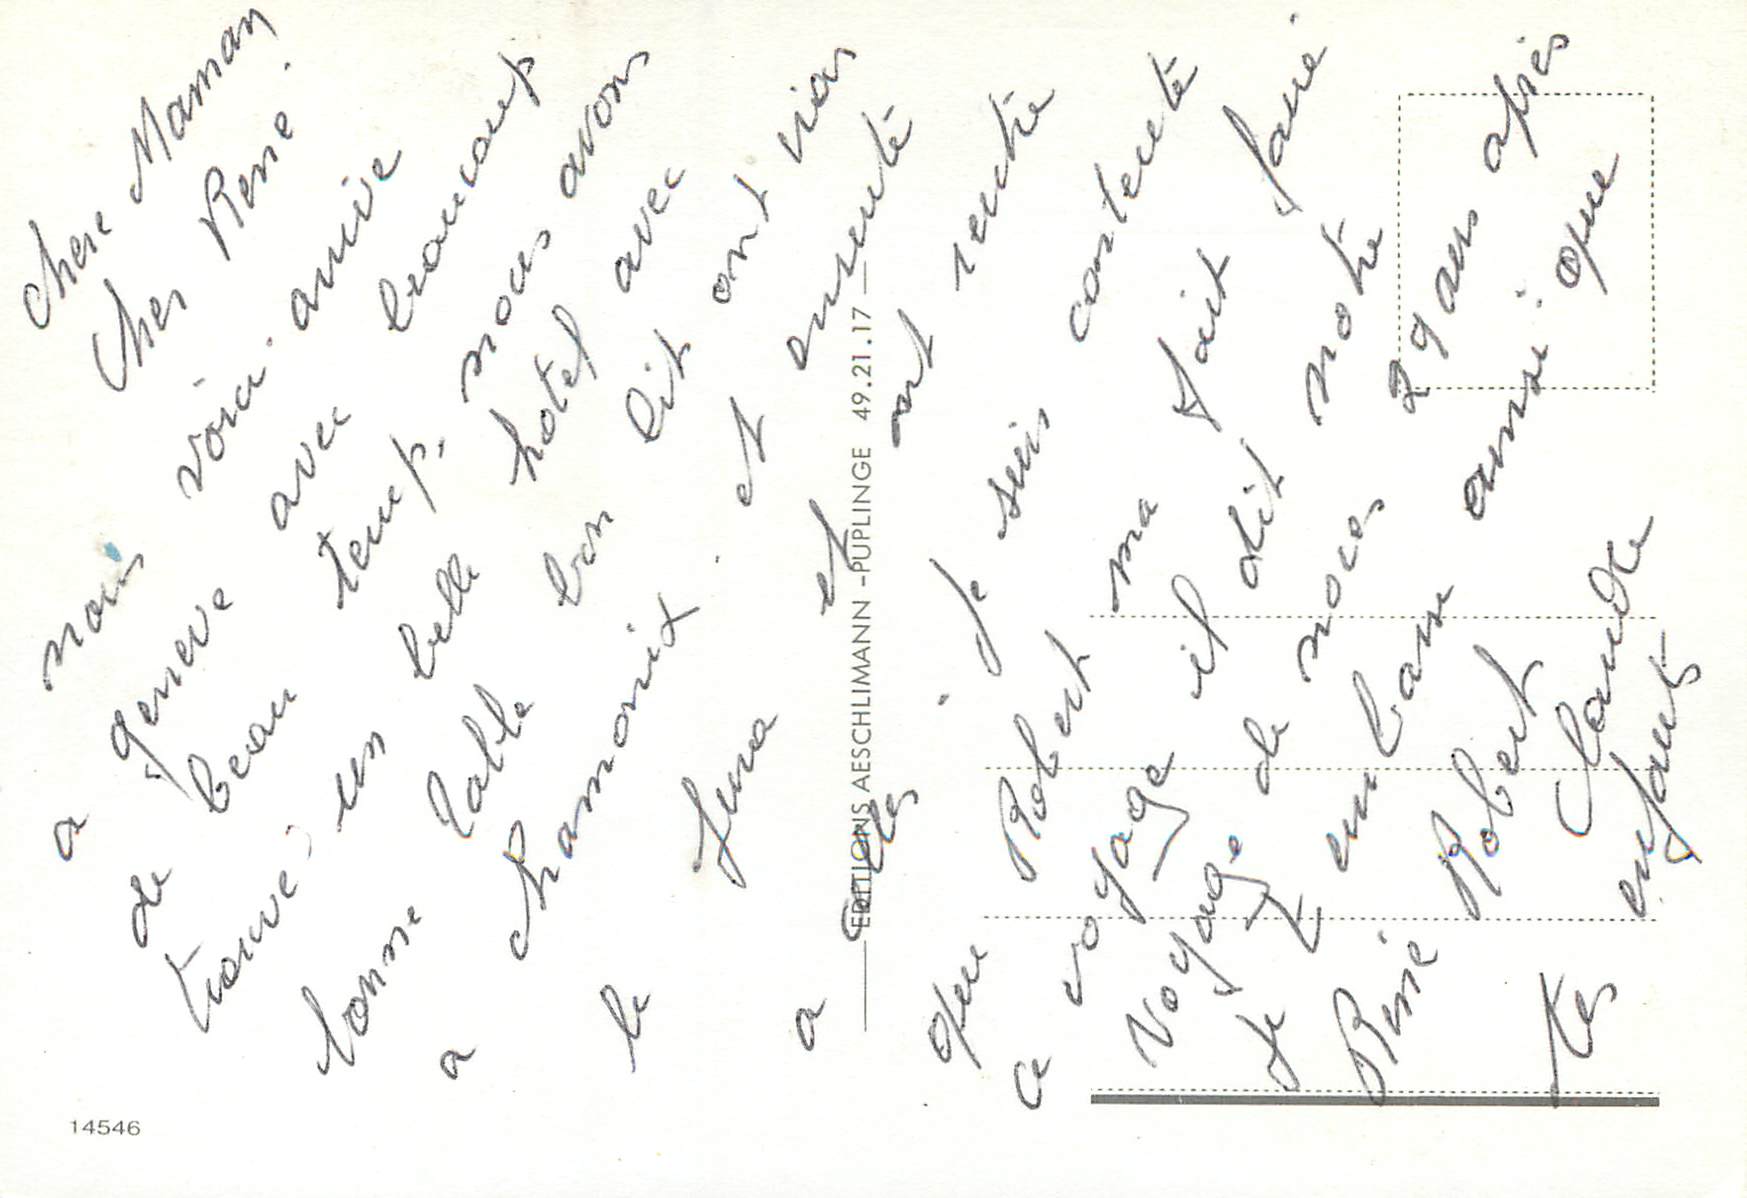 Chere Maman
Cher René
nous voici arrivé
a geneve avec beaucoup
de beau temp, nous avons
trouvé un belle hotel avec
bonne table bon lit ont
a Chamonix. et ensuite
le Jura et ont rentre
a cales. Je suis contente
que Robert ma fait faire
ce voyage il dit notre
Voyage de noces 29 ans après
Je t embrasse ainsi que
René Robert Claude
tes enfants
EDITIONS AESCHLIMANN - PUPLINGE 49.21.17
14546